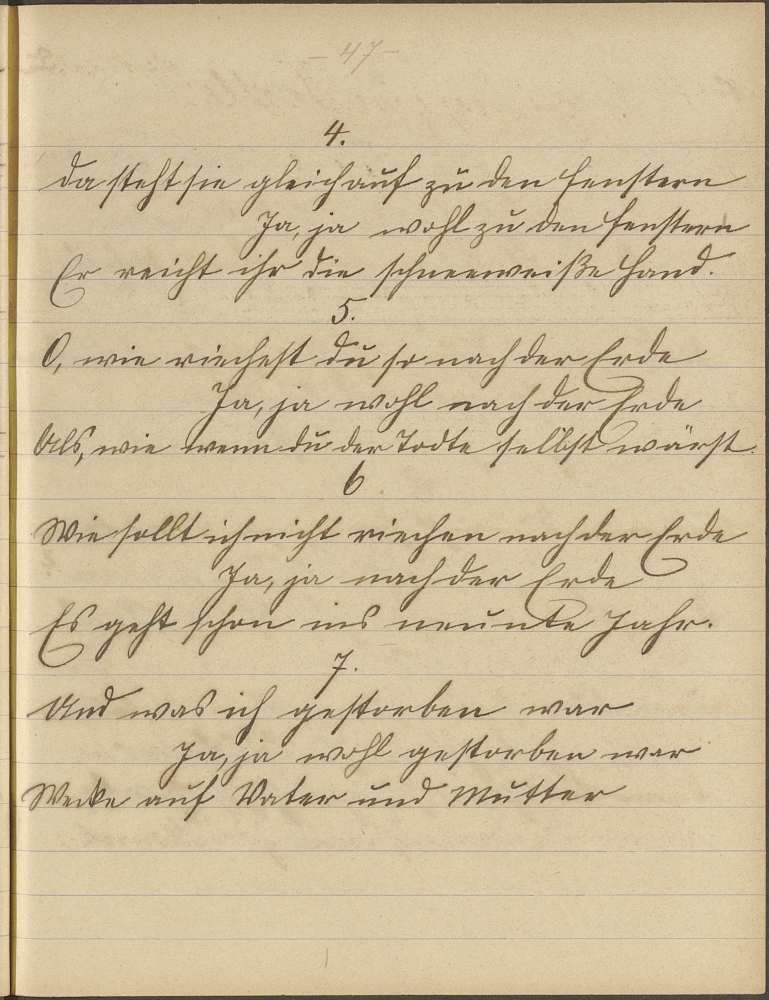 - 47 -
4.
Da steht sie gleich auf zu den Fenstern
Ja, ja wohl zu den Fenstern
Er reicht ihr die schneeweiße Hand.
5.
O, wie riechest du so nach der Erde
Ja, ja wohl nach der Erde
Als, wie wenn du der Todte selbst wärst.
6
Wie sollt ich nicht riechen nach der Erde
Ja, ja nach der Erde
Es geht schon ins neunte Jahr.
7.
Und was ich gestorben war
Ja, ja wohl gestorben war
Wecke auf Vater und Mutter